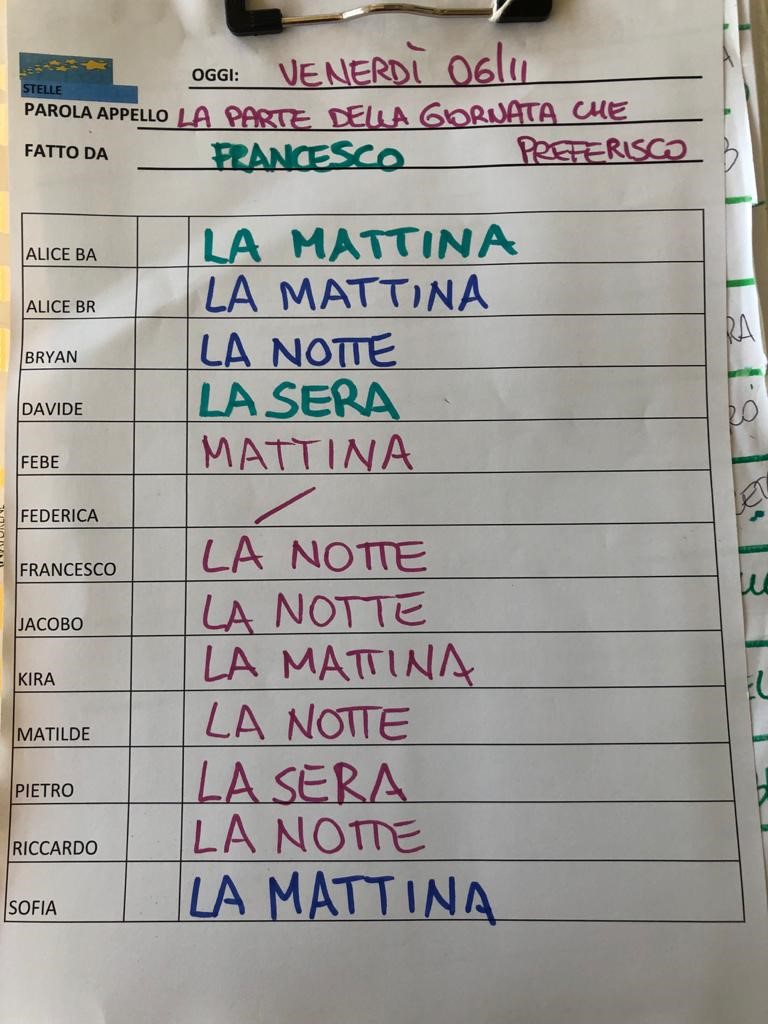 STELLE
OGGI: VENERDÌ 06/11
PAROLA APPELLO LA PARTE DELLA GIORNATA CHE
FATTO DA FRANCESCO PREFERISCO
ALICE BA LA MATTINA
ALICE BR LA MATTINA
BRYAN LA NOTTE
DAVIDE LA SERA
FEBE MATTINA
FEDERICA /
FRANCESCO LA NOTTE
JACOBO LA NOTTE
KIRA LA MATTINA
MATILDE LA NOTTE
PIETRO LA SERA
RICCARDO LA NOTTE
SOFIA LA MATTINA